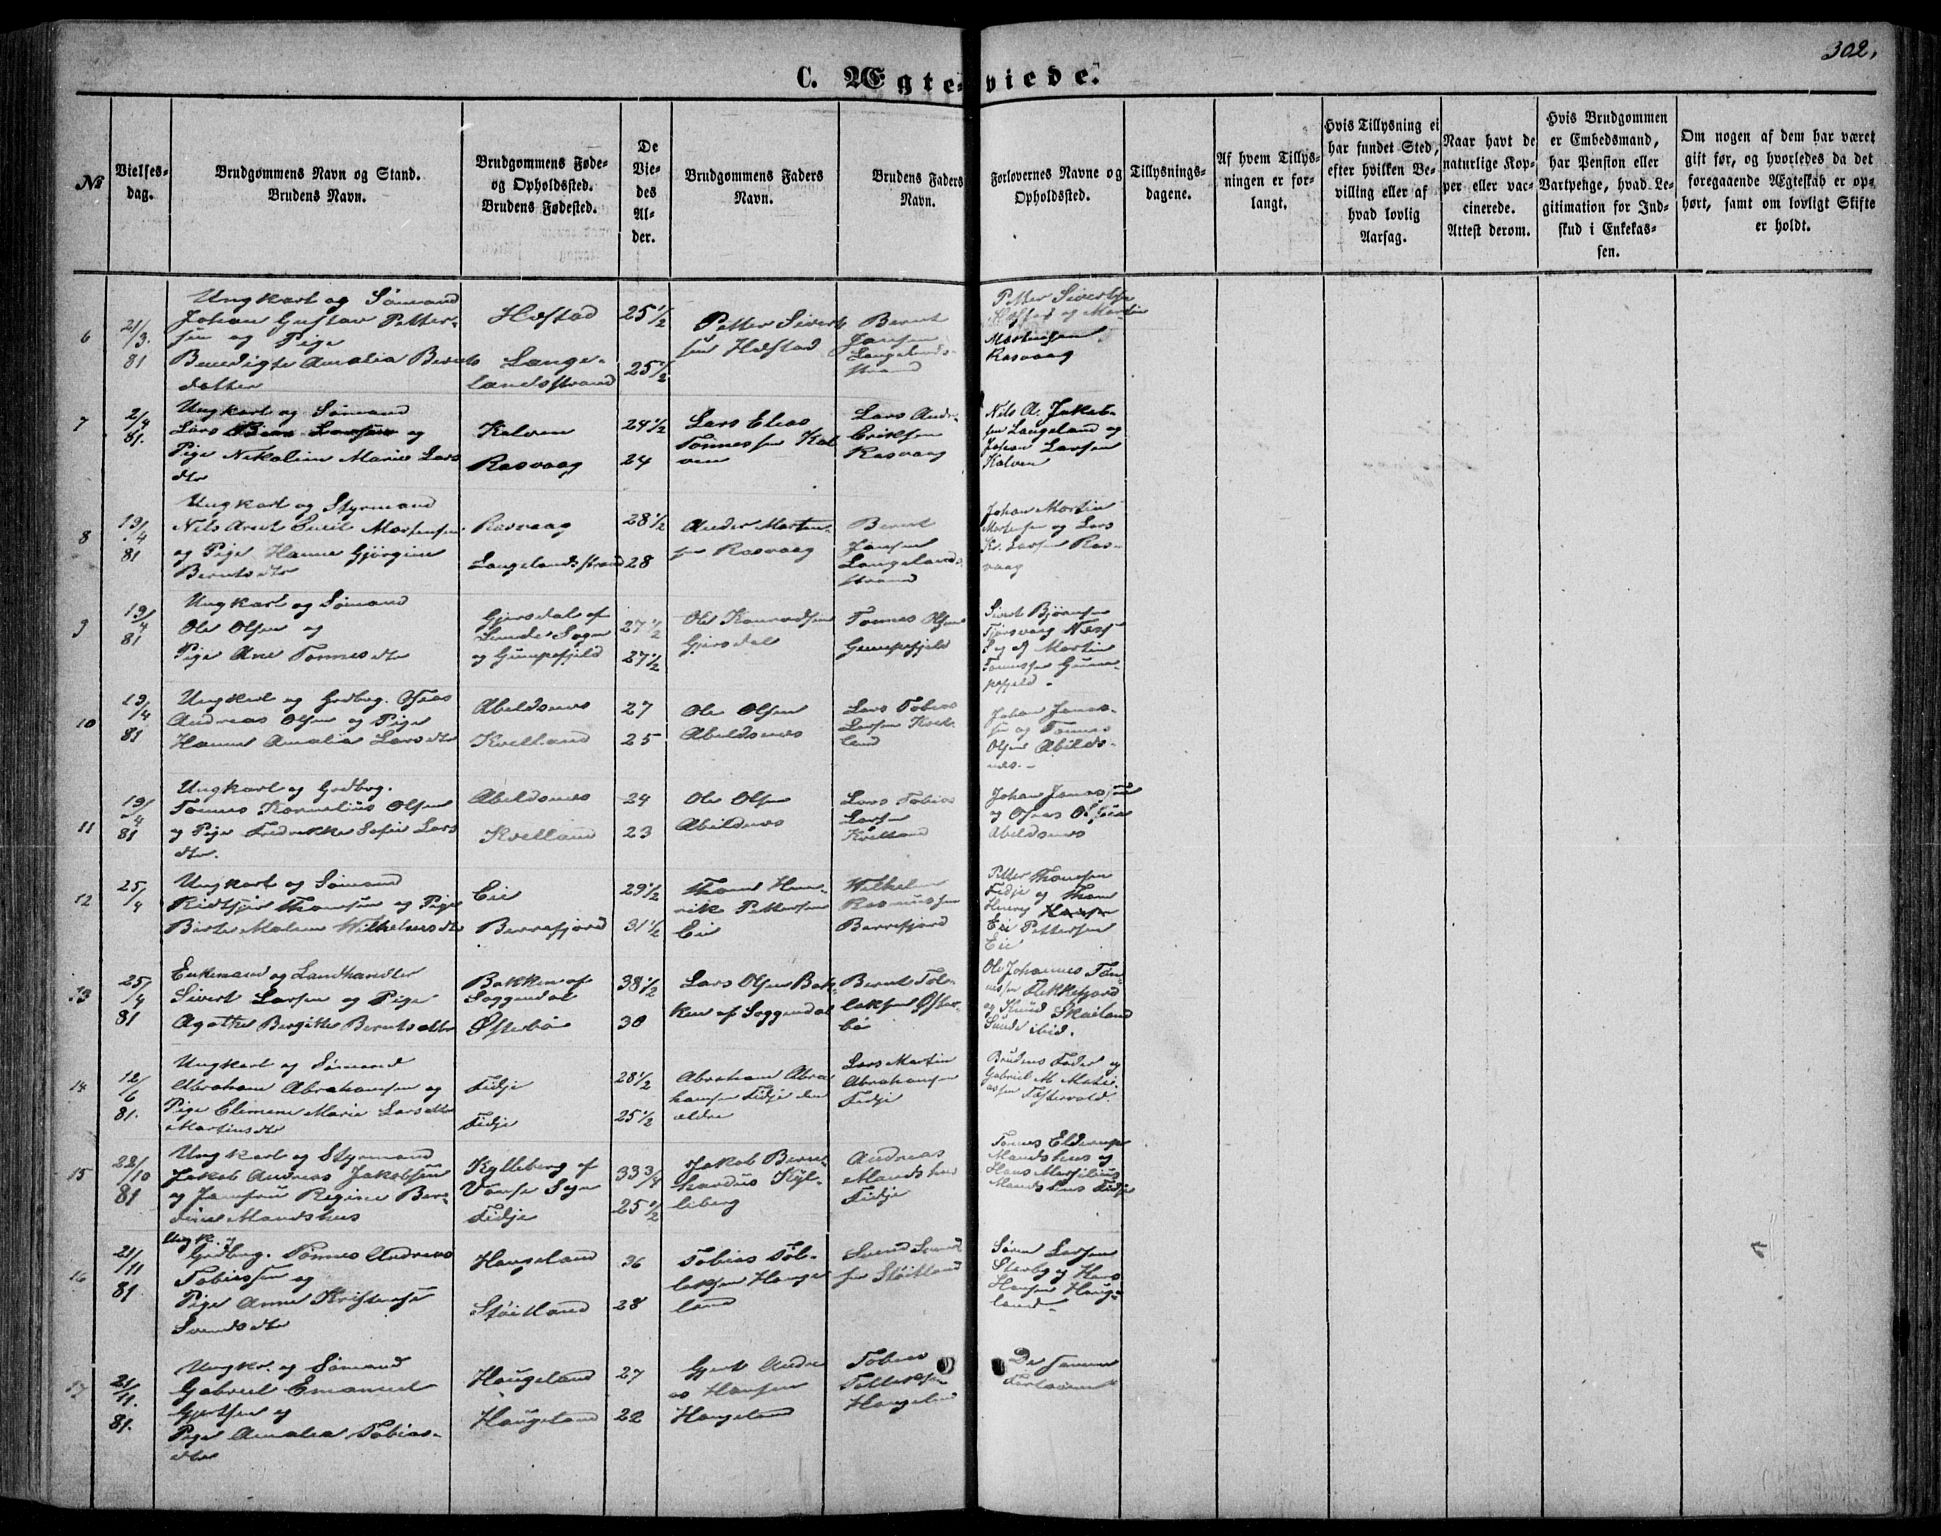 302,
C. Ægte-viede.
№
Vielses-
dag.
Brudgommens Navn og Stand.
Brudens Navn.
Brudgommens Føde-
og Opholdssted.
Brudens Fødested.
De
Vie-
des
Al-
der.
Brudgommens Faders
Navn.
Brudens Faders
Navn.
Forlovernes Navne og
Opholdssted.
Tillysnings-
dagene.
Af hvem Tillys-
ningen er for-
langt.
Hvis Tillysning ei
har fundet Sted,
efter hvilken Be-
villing eller af
hvad lovlig
Aarsag.
Naar havt de
naturlige Kop-
per eller vac-
cinerede.
Attest derom.
Hvis Brudgommen
er Embedsmand,
har Pension eller
Vartpenge, hvad Le-
gitimation for Ind-
skud i Enkekas-
sen.
Om nogen af dem har været
gift før, og hvorledes da det
foregaaende Ægteskab er op-
hørt, samt om lovligt Skifte
er holdt.
6
21/3.
81
Ungkarl og Sømand
Johan Gustav Petter-
sen og Pige
Benedigte Amalia Bernts
datter
Hæstad
Lange-
landsstrand
25 1/2
25 1/2
Petter Sivert
sen Hæstad
Bernt
Jansen
Langelands-
strand
Petter Sivertsen
og Martin
Martinsen
Rasvaag
7
2/4
81.
Ungkarl og Sømand
Lars og
Pige Nikoline Marie Lars
dtr
Kalven
Rasvaag
24 1/2
24
Lars Elias
Tønnessen Kal
ven
Lars Andr.
Eriksen
Rasvaag
Nils A. Jakob-
sen Langeland og
Johan Larsen
Kalven
8
19/4
81
Ungkarl og Styrmand
Nils Arnt Emil Mortensen
og Pige Hanne Gjørgine
Berntsdtr
Rasvaag
Langelandsstrand
28 1/2
28
Ander Morten-
sen Rasvaag
Bernt
Jansen
Langelands-
strand
Johan Martin
Mortensen og Lars
Kr. Larsen Ras-
vaag
9
19/4
81
Ungkarl og Sømand
Ole Olsen og
Pige Ane Tønnesdtr
Gjersdal af
Lunde Sogn
og Gumpefjeld
27 1/2
27 1/2
Ole Konradsen
Gjersdal
Tønnes Olsen
Gumpefjeld
Sivert Bjørnsen
Næs
Martin
Tønnessen Gum-
pefjeld.
10
19/4
81
Ungkarl og Grdbrg. Oseas
Andreas Olsen og Pige
Hanne Amalia Larsdtr
Abeldsnes
Kvelland
27
25
Ole Olsen
Abeldsnes
Lars Tobias
Larsen Kvel-
land
Johan Jonas-
sen og Tønnes
Olsen Abilds-
nes.-
11
19/4
81
Ungkarl og Grdbrg.
Tønnes Kornelius Olsen
og Pige Fredrikke Sofie Lars
dtr.
Abeldsnes
Kvelland
24
23
Ole Olsen
Abildsnes
Lars Tobias
Larsen
Kvelland
Johan Jonassen
og Oseas Olsen
Abeldsnes
12
25/4
Ungkarl og Sømand
Thomsen og Pige
Birte Malene Wilhelmsdtr
Eie
Berrefjord
29 1/2
31 1/2
Thom Hen-
rik Pettersen
Eie
Wilhelm
Rasmussen
Berrefjord
Petter Thomsen
Fidje og Thom
Henrik Hansen
Eie Pettersen
Eie
13
25/4
81
Enkemand og Landhandler
Sivert Larsen og Pige
Agathe Bergitte Berntsdtr
Bakken af
Soggendal
Østerbø
38 1/2
30
Lars Olsen Bak-
ken af Soggendal
Bernt Tol-
laksen Øster-
bø
Ole Johannes Tøn-
nessen Flekkefjord
og Knud Skailand
Sunde ibid.
14
12/6
81.
Ungkarl og Sømand
Abraham Abrahamsen og
Pige Elimene Marie Larsdtr
Martinsdtr
Fidje
Fidje
28 1/2
25 1/2
Abraham Abra
hamsen Fidje den
ældre
Lars Martin
Abrahamsen
Fidje
Brudens Fader og
Gabriel M. Mathi-
assen
15
22/10
81
Ungkarl og Styrmand
Jakob Andreas Jakobsen
og Jomfru Regine Ber-
dine Mandshus
Kylleberg af
Vanse Sogn
Fidje
33 3/4
25 1/2
Jakob Bern-
hardus Kyl-
leberg
Andreas
Mandshus
Fidje
Tønnes
Mandshus og
Hans Marsilius
Mandshus Fidje
16
21/11
81.
Ungk. og
Grdbrg. Tønnes Andreas
Tobiassen og
Pige Anne Kristense
Svendsdtr
Haugeland
Støitland
36
28
Tobias Tol-
laksen Hauge
land
Svend Svend
sen Støitland
Søren Larsen
og Hans
Hansen Hauge-
land.
17
21/11.
81.
Ungkr. og Sømand
Gabriel Emanuel
Gjertsen og
Pige Amalia Tobias-
dtr
Haugeland
Haugeland
27
22
Gjert Andre
as Hansen
Haugeland
Tobias
Tollaksen
Haugeland
De samme
Forlovere